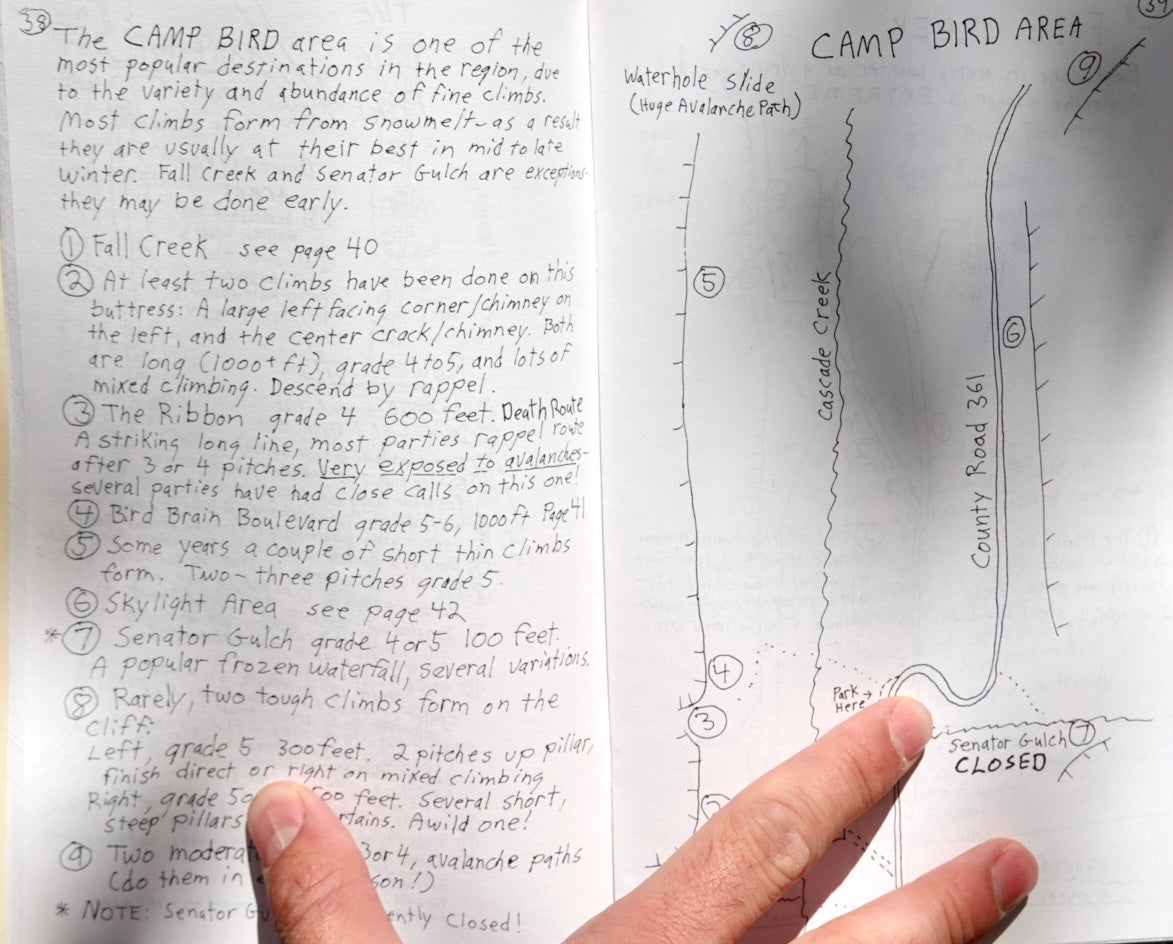 38
The CAMP BIRD area is one of the
most popular destinations in the region, due
to the variety and abundance of fine climbs.
Most climbs form from snowmelt-as a result
they are usually at their best in mid to late
winter. Fall Creek and Senator Gulch are exceptions-
they may be done early.
① Fall Creek see page 40
② At least two climbs have been done on this
buttress: A large left facing corner/chimney on
the left, and the center crack/chimney. Both
are long (1000+ ft), grade 4 to 5, and lots of
mixed climbing. Descend by rappel.
③ The Ribbon grade 4 600 feet. Death Route
A striking long line, most parties rappel route
after 3 or 4 pitches. Very exposed to avalanches-
several parties have had close calls on this one!
④ Bird Brain Boulevard grade 5-6, 1000ft Page 41
⑤ Some years a couple of short thin climbs
form. Two-three pitches grade 5.
⑥ Skylight Area see page 42
* ⑦ Senator Gulch grade 4 or 5 100 feet.
A popular frozen waterfall, several variations.
⑧ Rarely, two tough climbs form on the
cliff:
Left, grade 5 300 feet. 2 pitches up pillar,
finish direct or right on mixed climbing
Right, grade 5 00 feet. Several short,
steep pillars A wild one!
⑨ Two 3 or 4, avalanche paths
(do them in
* NOTE: Senator closed!
39
CAMP BIRD AREA
⑧
⑨
Waterhole Slide
(Huge Avalanche Path)
⑤
Cascade Creek
County Road 361
⑥
④
③
Park →
Here
Senator Gulch ⑦
CLOSED